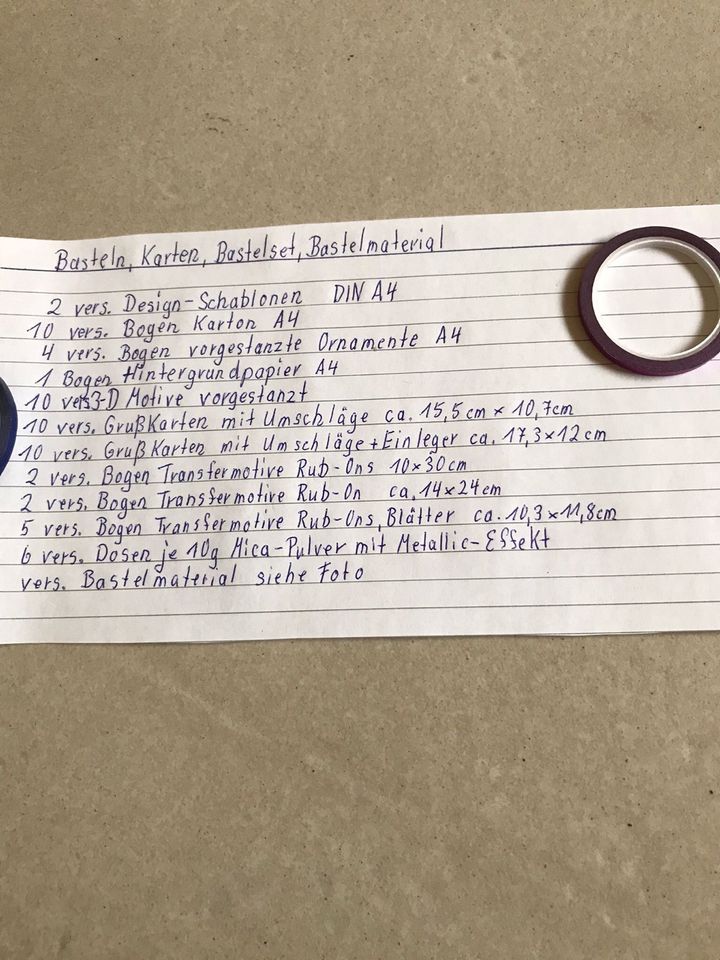 Basteln, Karten, Bastelset, Bastelmaterial
2 vers. Design-Schablonen DIN A4
10 vers. Bogen Karton A4
4 vers. Bogen vorgestanzte Ornamente A4
1 Bogen Hintergrundpapier A4
10 vers 3-D Motive vorgestanzt
10 vers. Grußkarten mit Umschläge ca. 15,5cm x 10,7cm
10 vers. Grußkarten mit Umschläge + Einleger ca. 17,3x12cm
2 vers. Bogen Transfermotive Rub-Ons 10x30cm
2 vers. Bogen Transfermotive Rub-On ca. 14x24cm
5 vers. Bogen Transfermotive Rub-Ons, Blätter ca. 10,3x11,8cm
6 vers. Dosen je 10g Mica-Pulver mit Metallic-Effekt
vers. Bastelmaterial siehe Foto